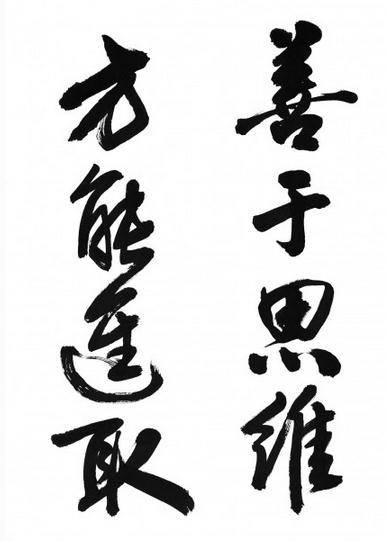 善于思维
方能進取